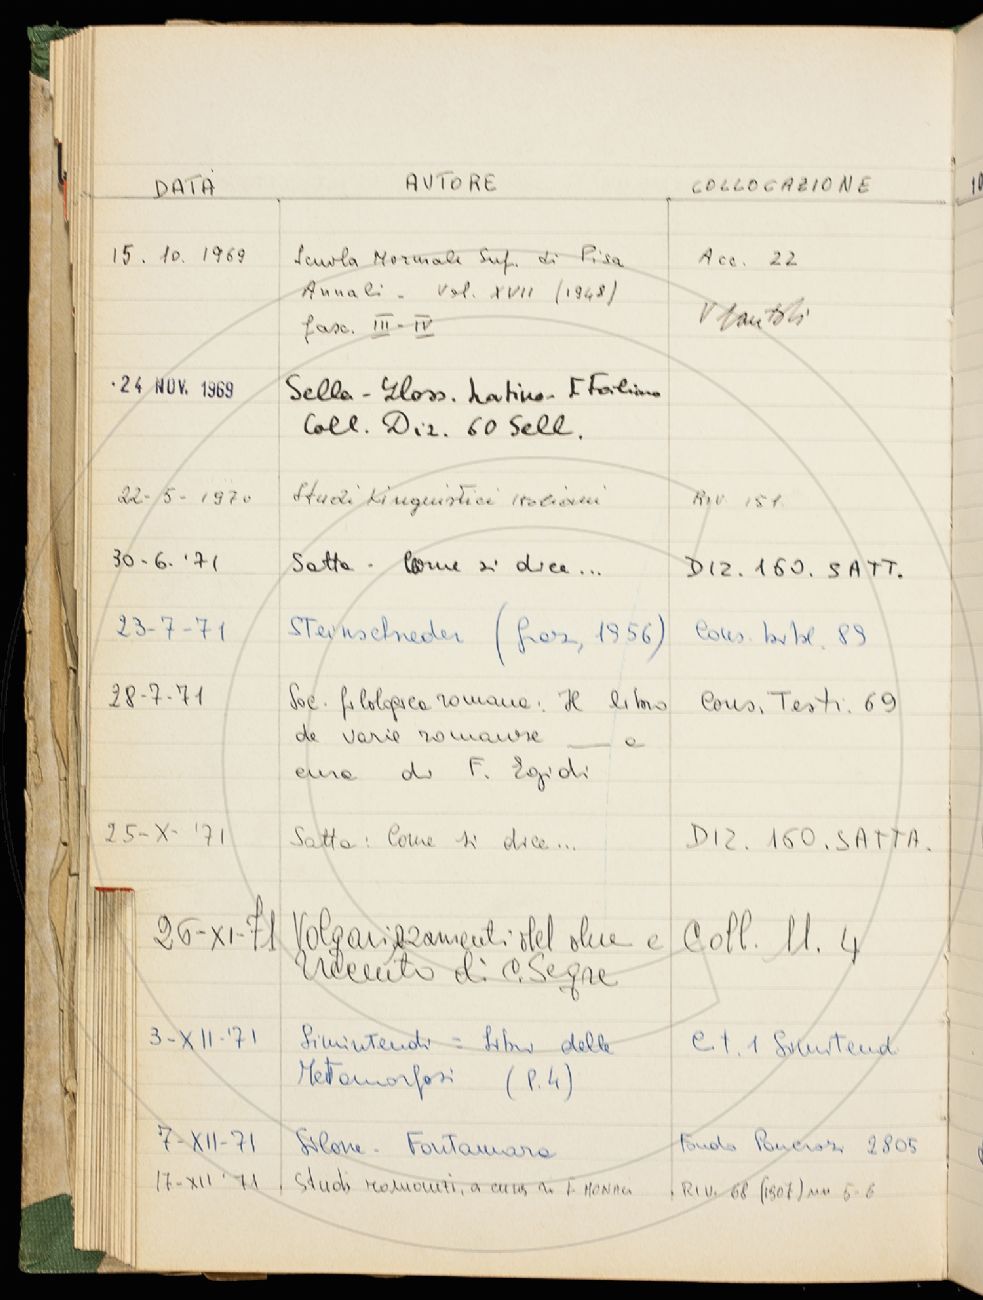 DATA AUTORE COLLOCAZIONE
15. 10. 1969 Scuola Normale Sup. di Pisa Acc. 22
Annali - Vol. XVII (1948)
fasc. III-IV
24 NOV. 1969 Sella - Gloss. Latino-
Coll. Diz. 60 Sell.
22-5-1970 Studi Linguistici italiani RIV. 151
30-6-'71 Satta - Come si dice... DIZ. 160. SATT.
23-7-71 Steinschneder ( 1956) Cons. bibl. 89
28-7-71 Soc. filologica romana: Il libro Cons. Testi. 69
de varie romanze — a
cura di F. Egidi
25-X-'71 Satta: Come si dice... DIZ. 160. SATTA.
26-XI-71 Volgarizzamenti del due e Coll. 11. 4
trecento di C. Segre
3-XII-'71 Simintendi = Libri delle C.t. 1 Simintend
Metamorfosi (P.4)
7-XII-71 Silone - Fontamara Fondo Pancrazi 2805
17-XII '71 Studi romanzi, a cura di E. MONACI RIV. 68 (1907) 5-6